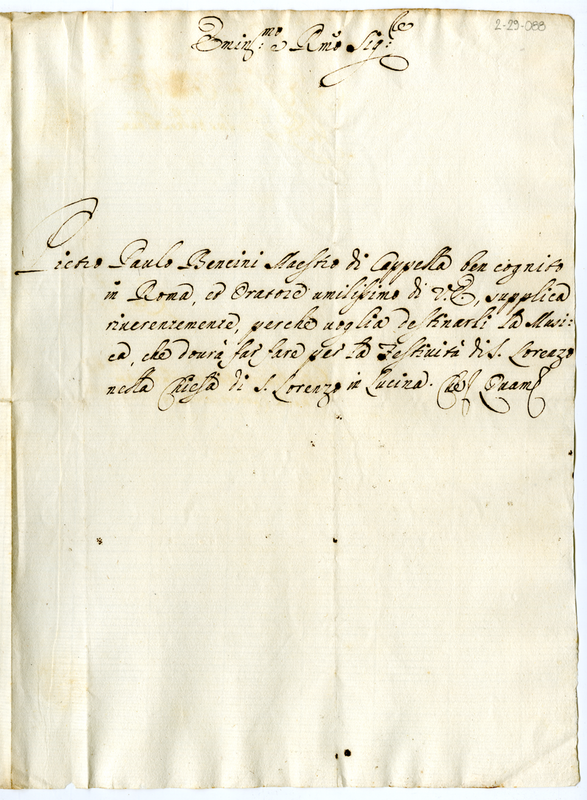 2-29-088
Emin.mo e R.mo Sig.re
Pietro Paulo Bencini Maestro di Cappella ben cognito
in Roma, et Oratore umilissimo di V.E. supplica
riverentemente, perche voglia destinarli la Musi-
ca, che dovrà far fare per la Festività di S. Lorenzo
nella Chiesa di S. Lorenzo in Lucina. Che Quam